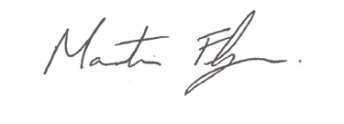 Martin Flynn.